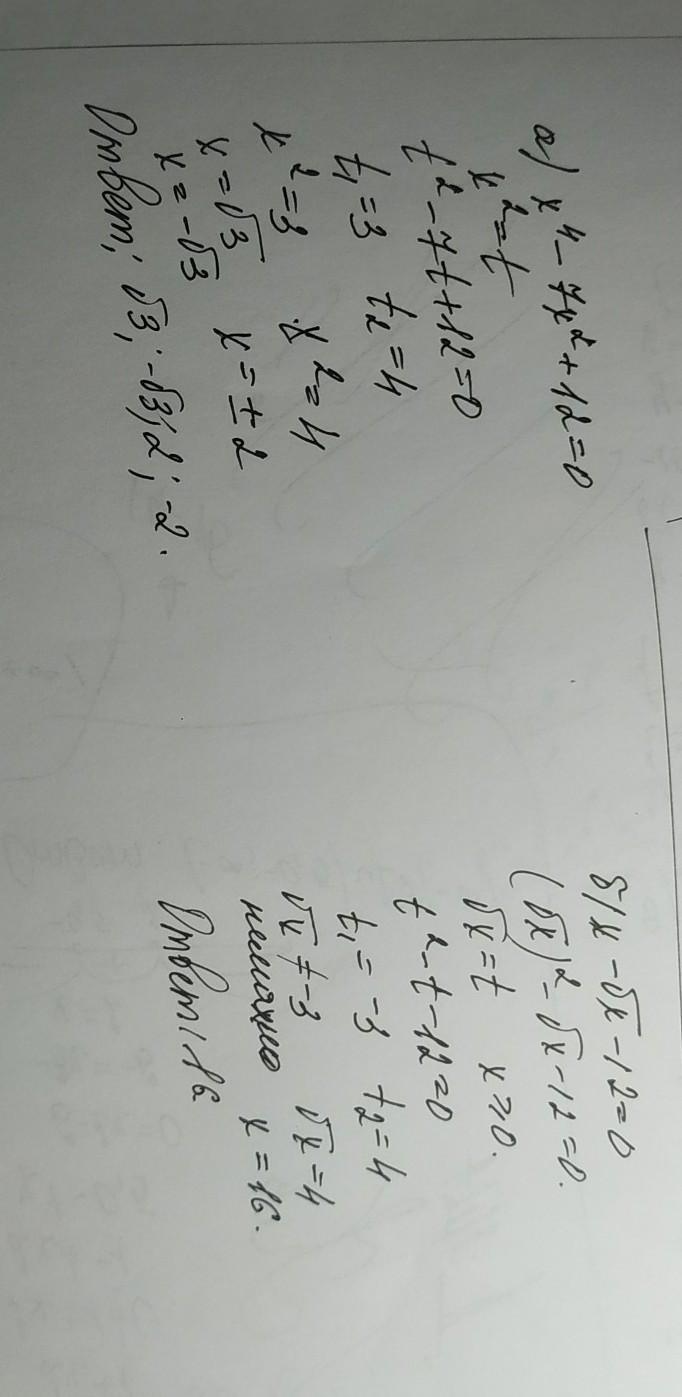 а) x⁴ - 7x² + 12 = 0
x² = t
t² - 7t + 12 = 0
t₁ = 3 t₂ = 4
x² = 3 x² = 4
x = √3 x = ± 2
x = -√3
Ответ: √3; -√3; 2; -2.
б) x - √x - 12 = 0
(√x)² - √x - 12 = 0.
√x = t x ≥ 0.
t² - t - 12 = 0
t₁ = -3 t₂ = 4
√x ≠ -3 √x = 4
x = 16.
Ответ: 16